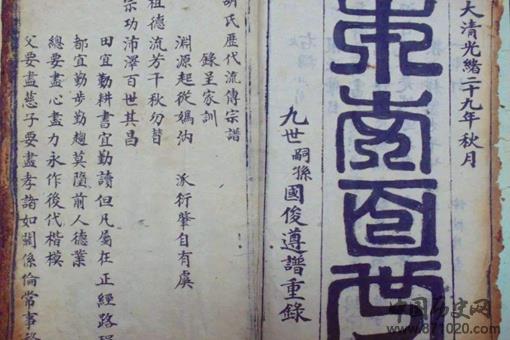 大清光緒二十九年秋月
百世
九世嗣孫國俊遵譜重錄
胡氏歷代流傳宗譜
錄呈家訓
淵源起從媯汭 派衍肇自有虞
祖德流芳千秋勿替
宗功沛澤百世其昌
田宜勤耕書宜勤讀但凡屬在正經路
都宜勤步勤趨莫隳前人德業
總要盡心盡力永作後代楷模
父要盡慈子要盡孝諸如關係倫常事務
中国历史网
www.871020.com